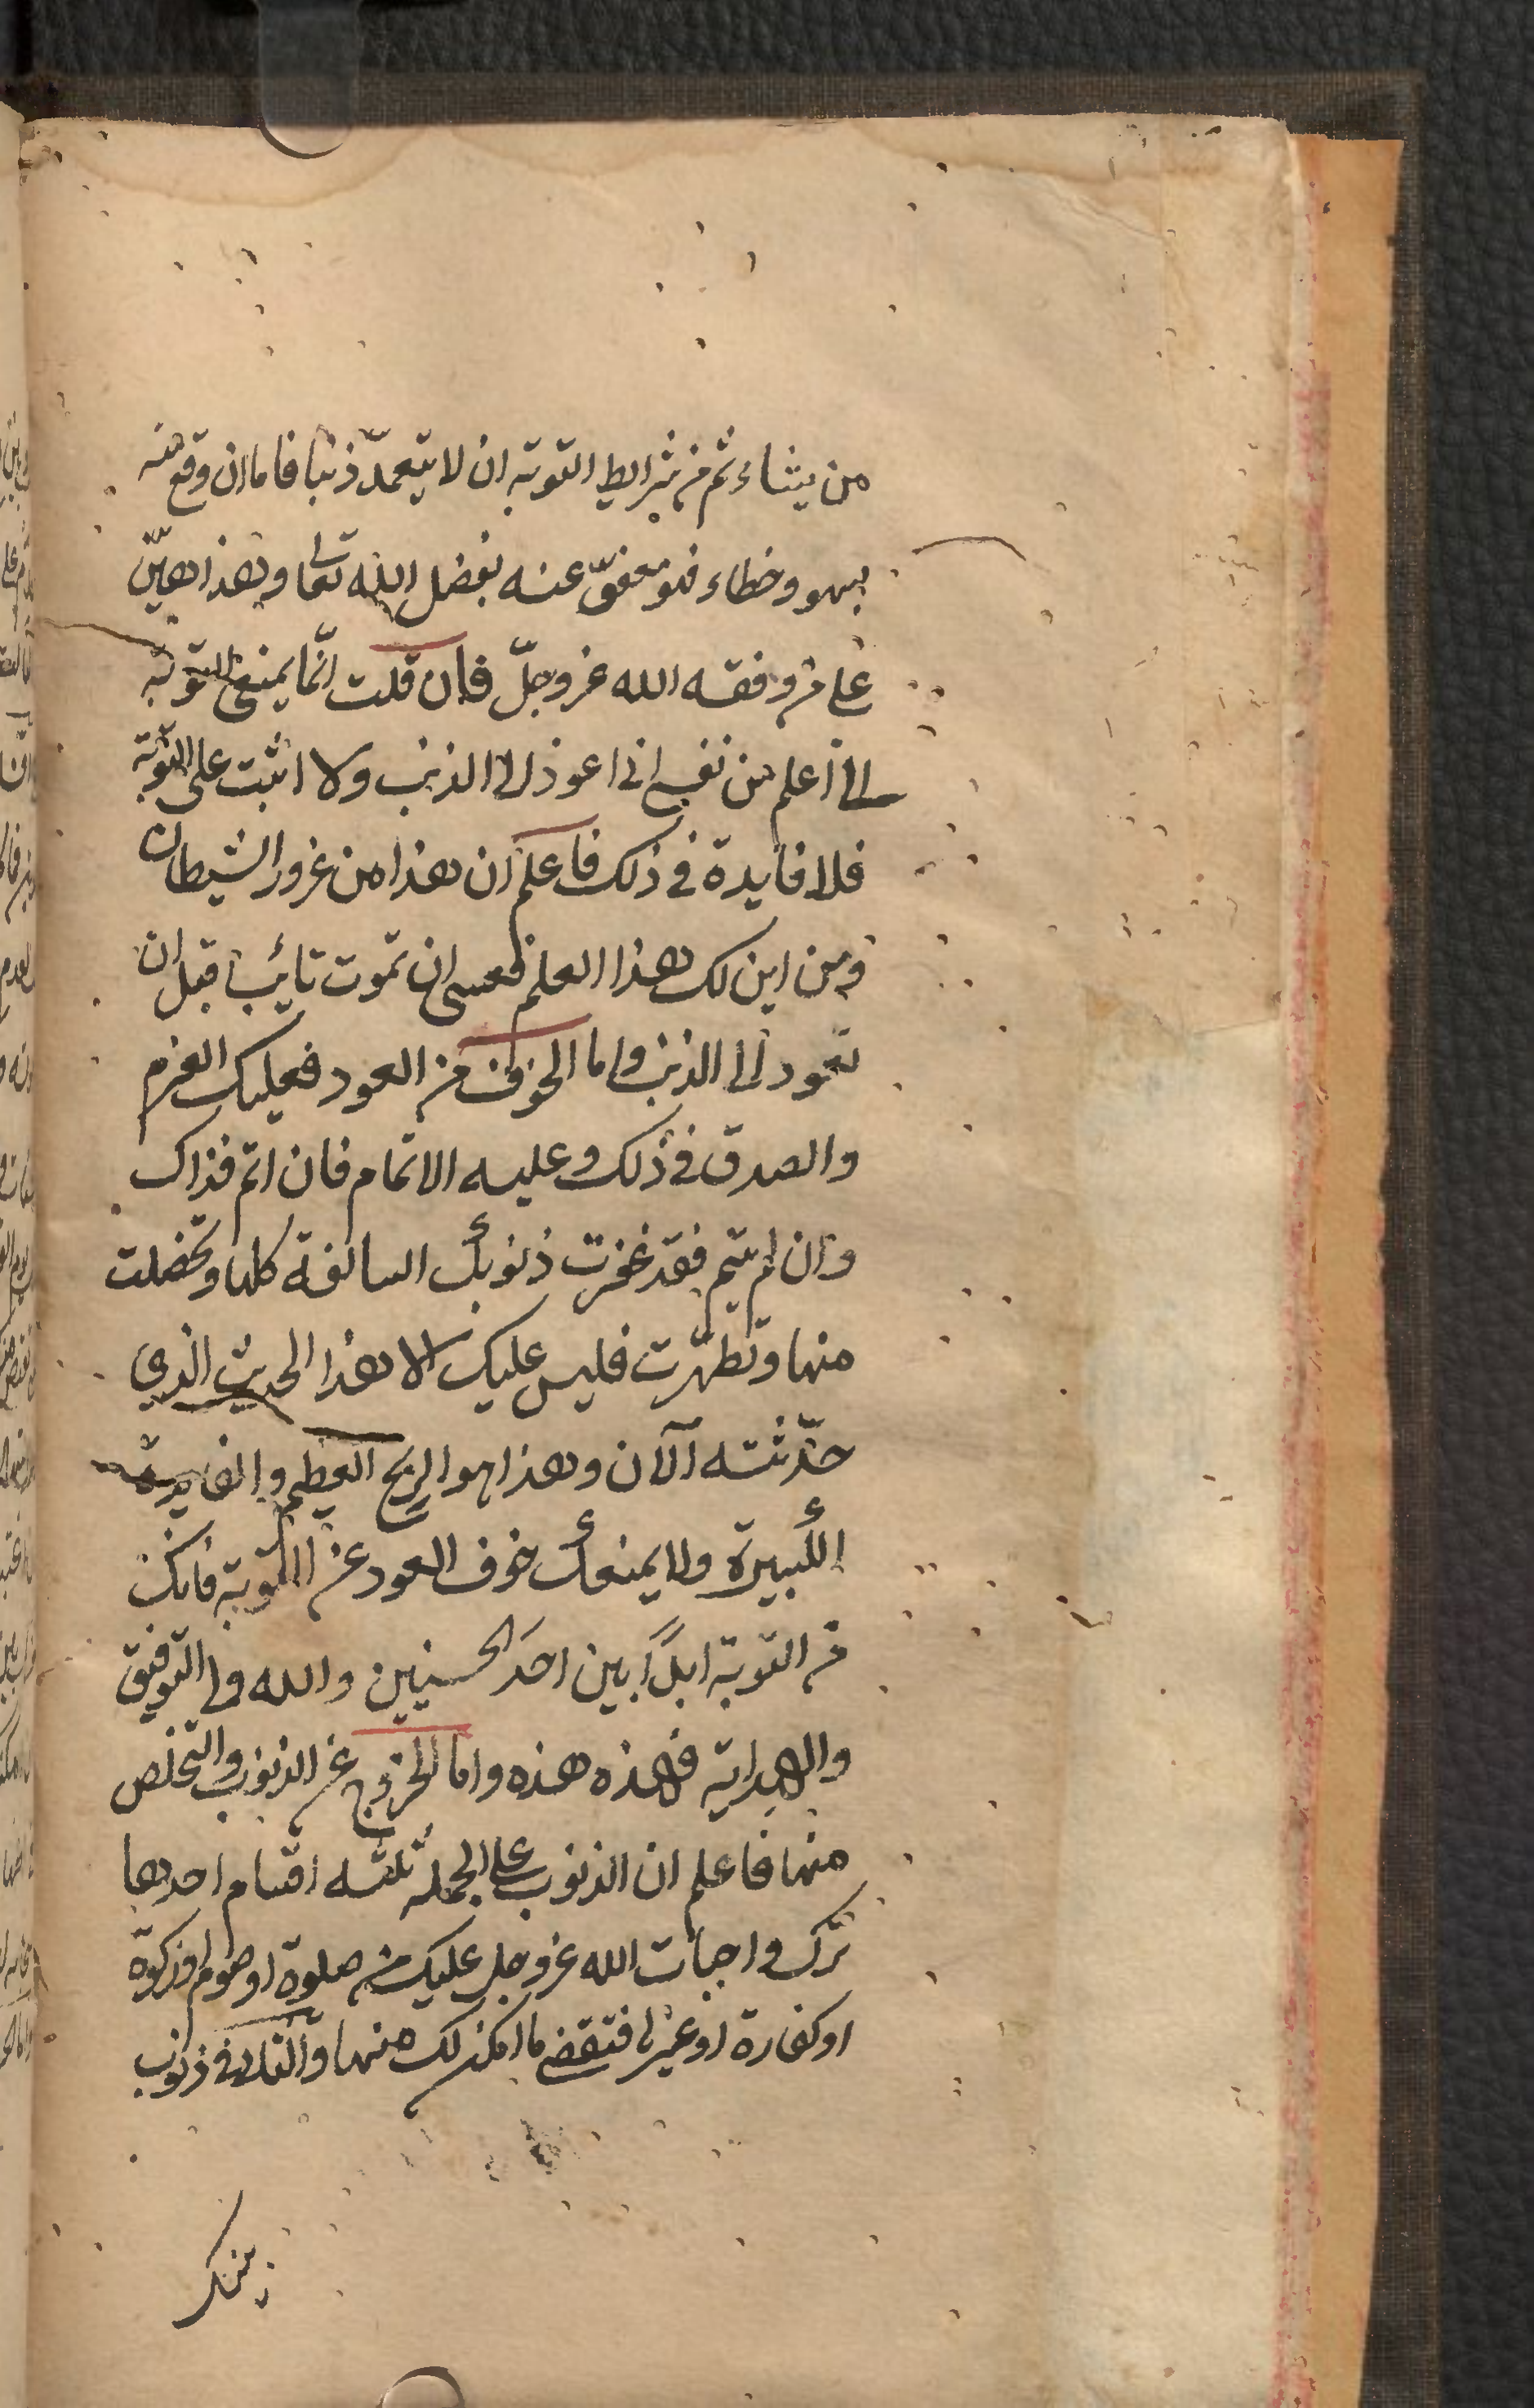 من يشاء ثم من شرايط التوبة ان لا يتعمّد ذنبا فاما ان وقع منه
بسهو وخطاء فهو معفوّ عنه بفضل الله تعالى وهذا هيّن
على من وفقه الله عز وجلّ فان قلت انّما يمنعنى التوبة
انى اعلم من نفسى انى اعود الى الذنب ولا اثبت على التوبة
فلا فايدة فى ذلك فاعلم ان هذا من غرور الشيطان
ومن اين لك هذا العلم فعسى ان تموت تائبا قبل ان
تعود الى الذنب واما الخوف من العود فعليك العزم
والصدق فى ذلك وعليه الاتمام فان اتم فذاك
وان لم يتم فقد غفرت ذنوبك السالفة كلها وتخصلت
منها وتطهّرت فليس عليك الا هذا الحديث الذي
حدّثته الآن وهذا هو الربح العظيم والفايدة
الكبيرة ولا يمنعك خوف العود عن التوبة فانك
من التوبة ابداً بين احد الحسنيين والله ولى التوفيق
والهداية فهذه هذه واما الخروج عن الذنوب والتخلص
منها فاعلم ان الذنوب على الجملة ثلثه اقسام احدها
ترك واجبات الله عز وجل عليك من صلوة او صوم او زكوة
او كفارة او غيرها فتقضى ما امكن لك منها والثانى ذنوب
بينك